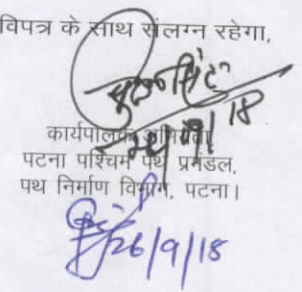 विपत्र के साथ संलग्न रहेगा,
कार्यपालक अभियंता
पटना पश्चिम पथ प्रमंडल,
पथ निर्माण विभाग, पटना।
26/9/18